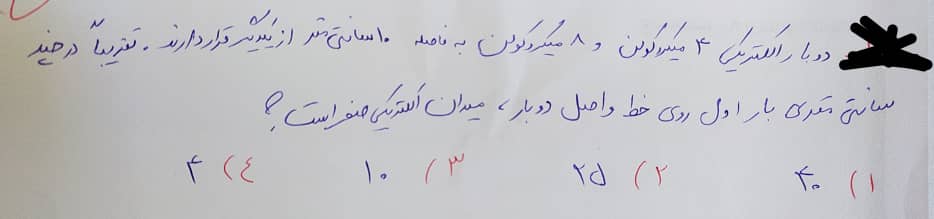 دو بار الکتریکی ۴ میکروکولن و ۸ میکروکولن به فاصله ۱۰ سانتی متر از یکدیگر قرار دارند. تقریباً در چند
سانتی متری بار اول روی خط واصل دو بار، میدان الکتریکی صفر است؟
۱) ۴۰ ۲) ۲۵ ۳) ۱۰ ٤) ۴